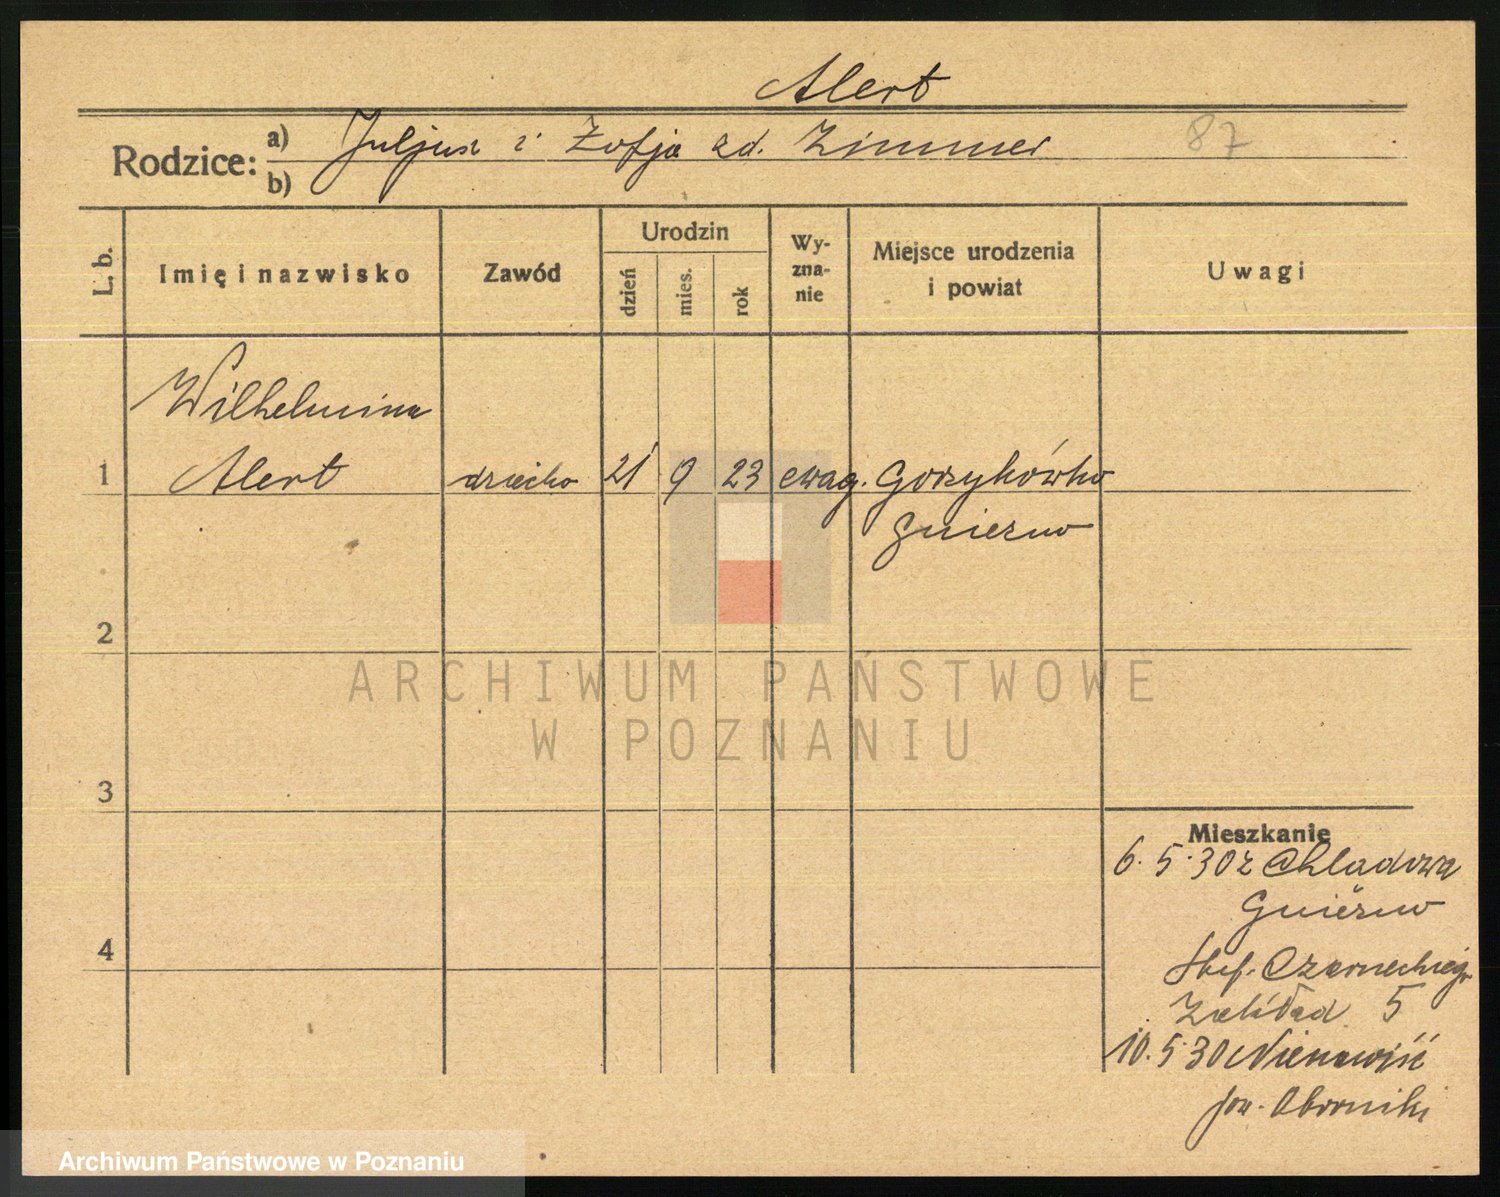 Alert
Rodzice: a) Juljusz i Zofja zd. Zimmer 87
b)
L. b. Imię i nazwisko Zawód Urodzin dzień mies. rok Wy-zna-nie Miejsce urodzenia i powiat Uwagi
Wilhelmina
1 Alert dziecko 21 9 23 ewag. Gorzykówko
Gniezno
2
ARCHIWUM PAŃSTWOWE
W POZNANIU
3
Mieszkanie
6. 5. 30 z Chladowa
Gniezno
4
Stef. Czarneckiego
Zakład 5
10. 5. 30 Nienawiść
pow. Oborniki
Archiwum Państwowe w Poznaniu